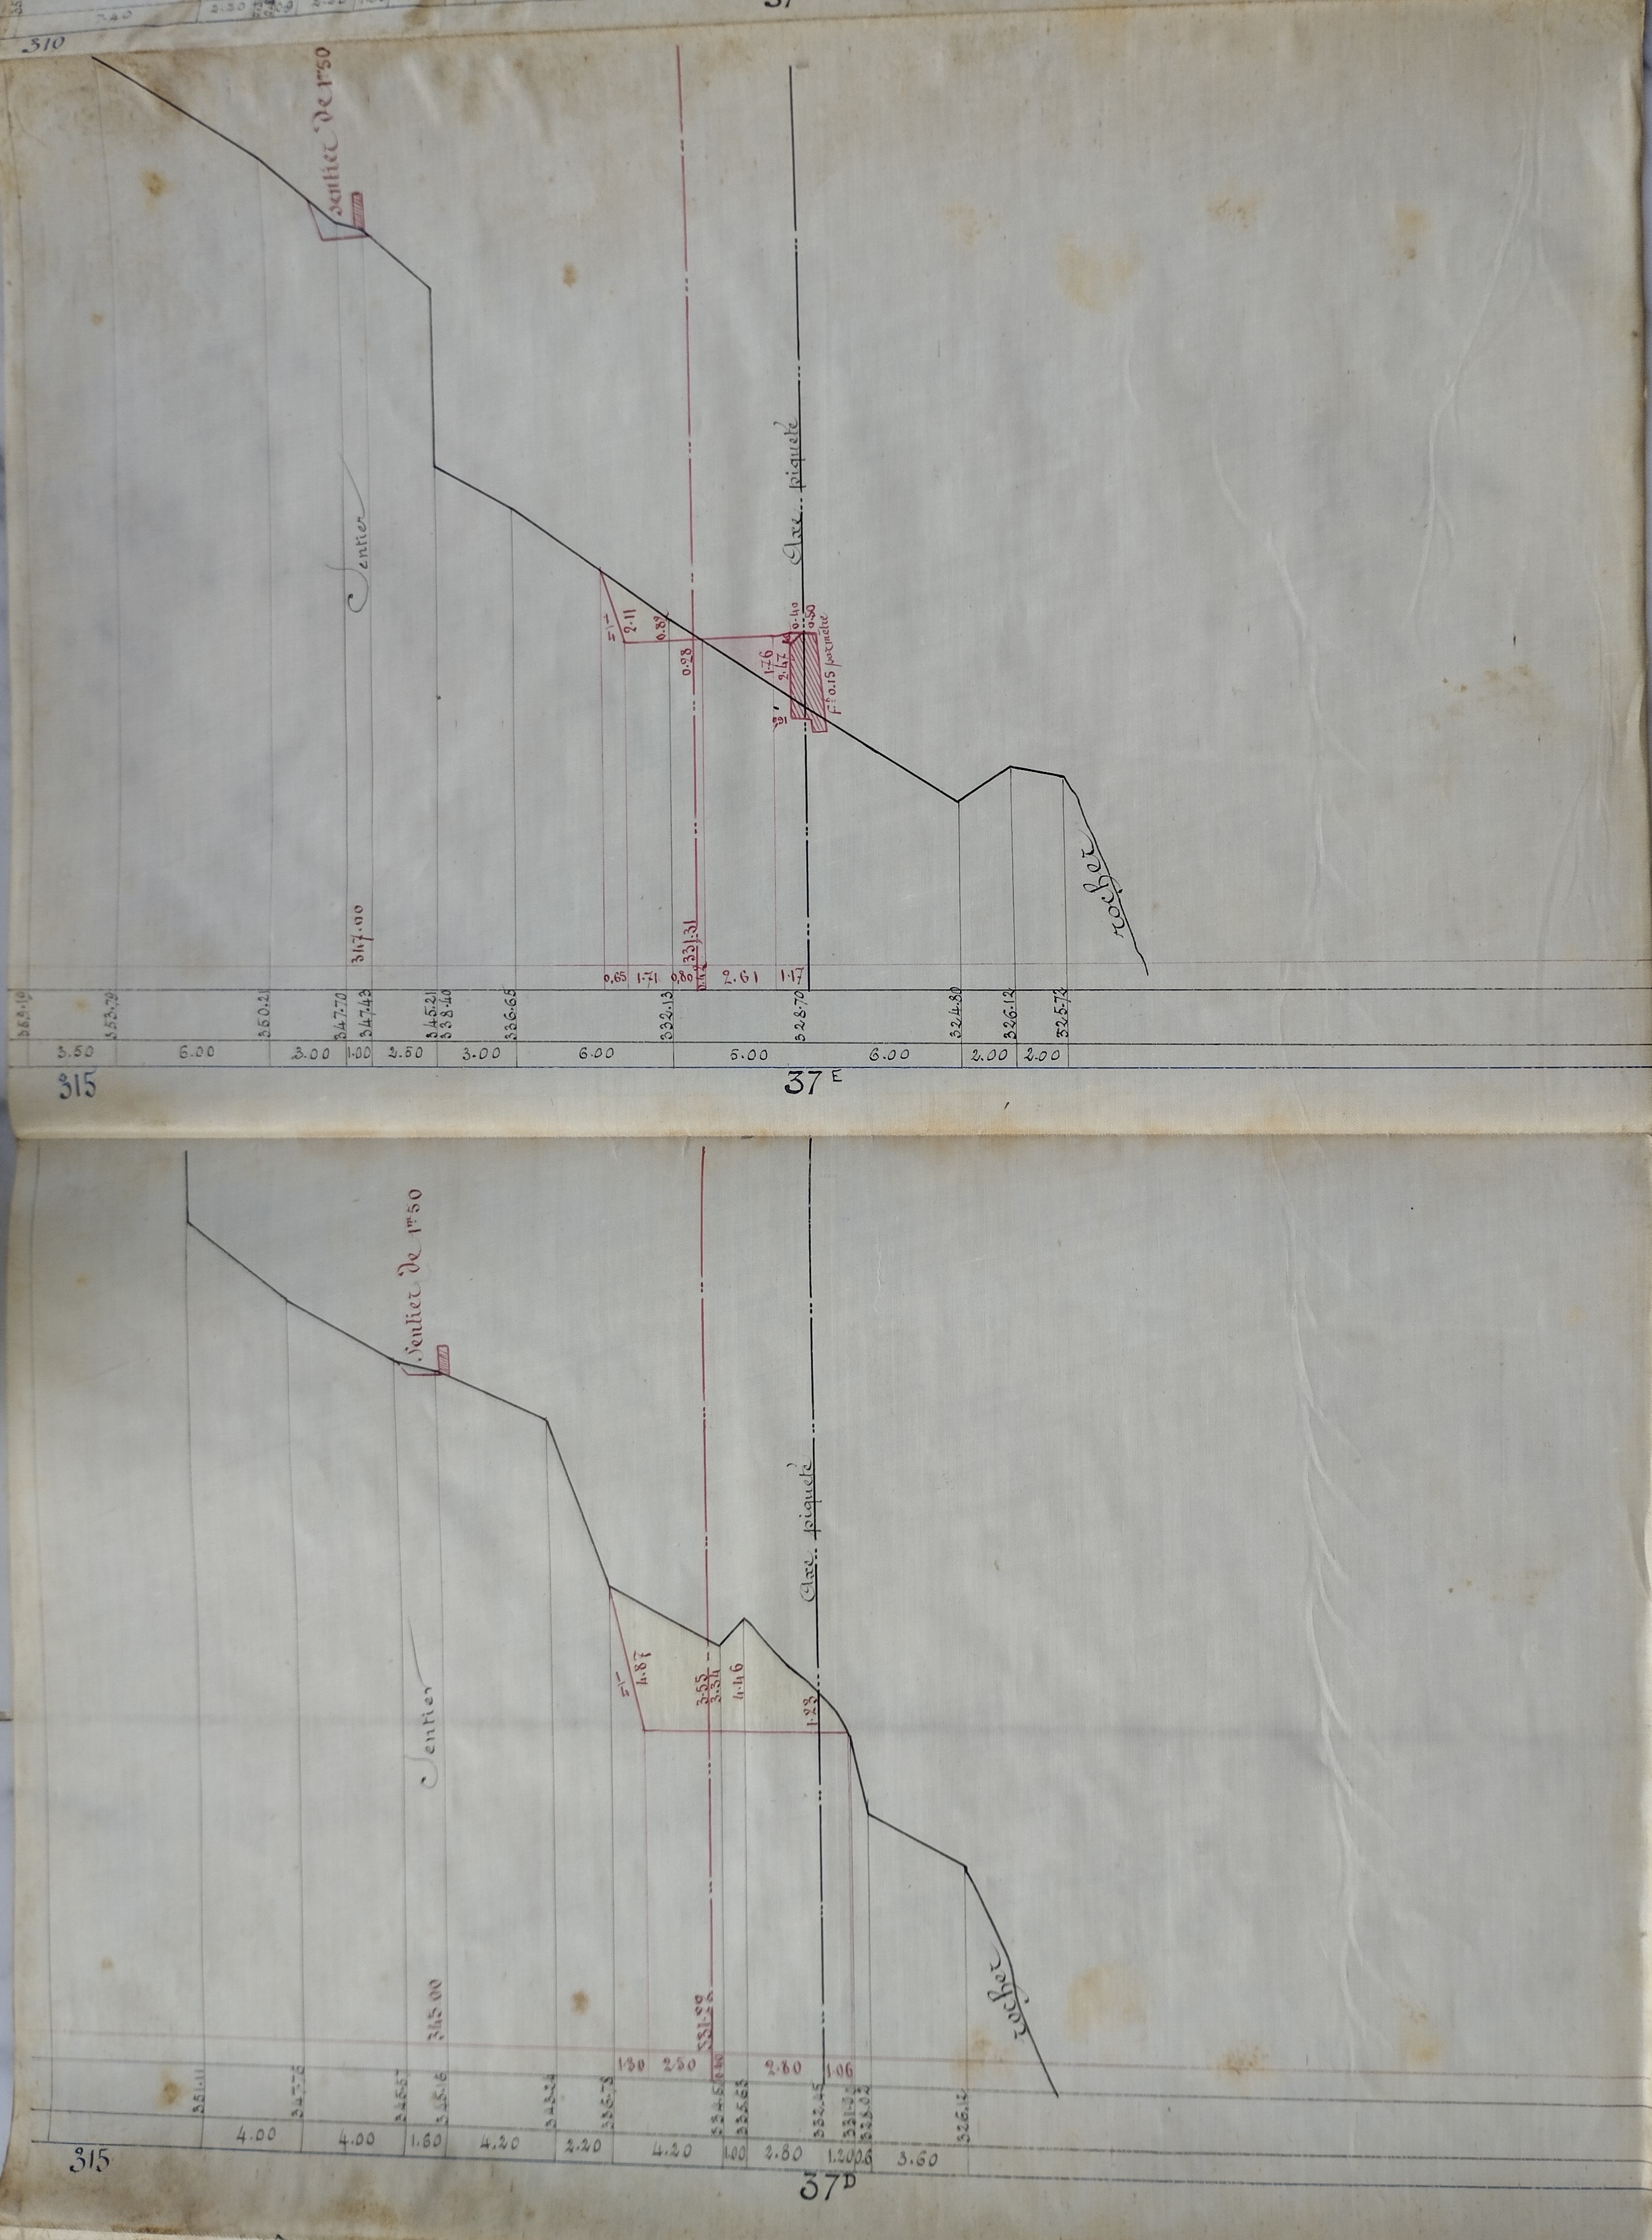 310
37
Sentier de 1m50
Sentier
Axe piqueté
2.11
0.89
0.28
1.76
2.47
0.40
0.50
Ft 0.15 par mètre
rocher
347.00
331.31
0.65 1.71 0.80 2.61 1.17
353.79 350.21 347.70 347.43 345.21 338.40 336.65 332.13 328.70 324.80 326.12 325.72
3.50 6.00 3.00 1.00 2.50 3.00 6.00 5.00 6.00 2.00 2.00
315
37 E
Sentier de 1m50
Sentier
Axe piqueté
4.87
3.55
3.34
4.46
1.23
rocher
345.00
331.29
1.30 2.50 2.80 1.06
351.11 347.76 345.57 345.16 343.24 336.78 335.63 332.45 328.02 326.12
4.00 4.00 1.60 4.20 2.20 4.20 1.00 2.80 1.20 0.6 3.60
315
37D